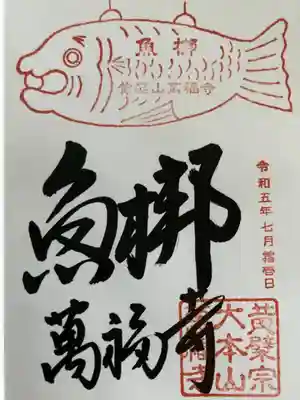 魚梆
黄檗山萬福寺
魚梆
萬福寺
令和五年七月吉日
黄檗宗
大本山
萬福寺